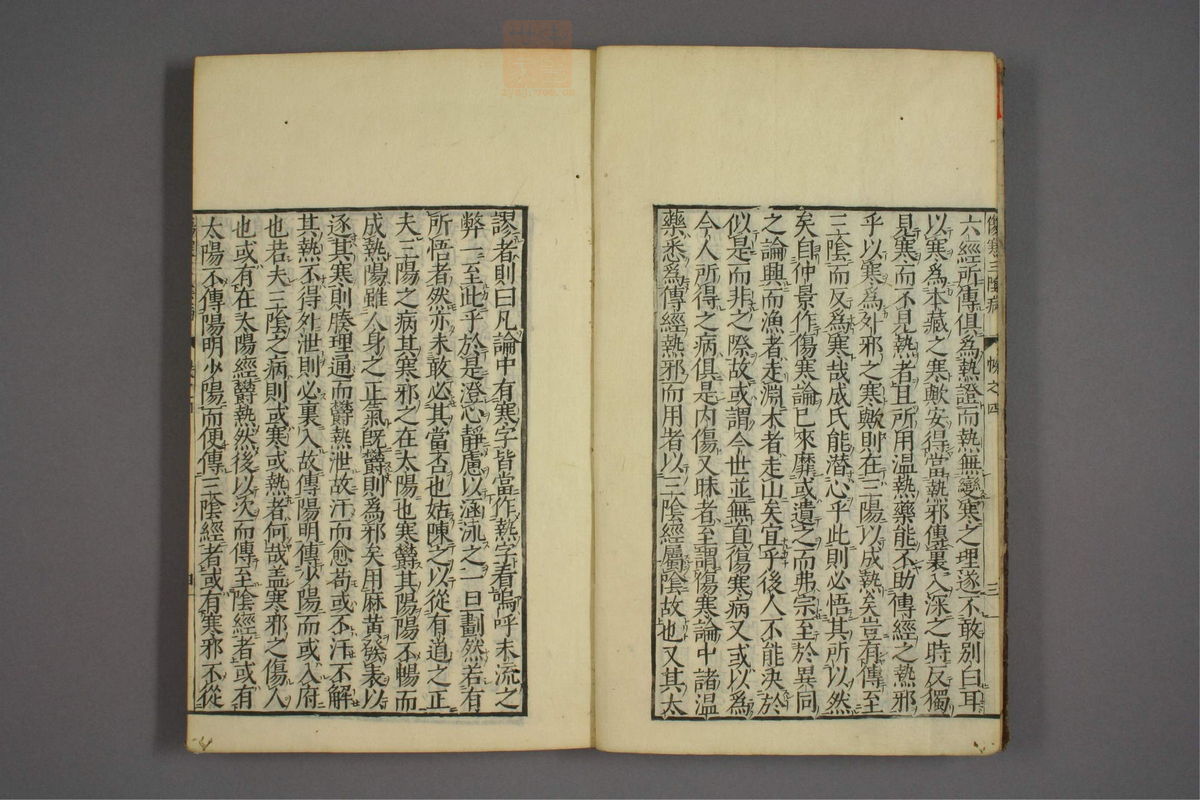 傷寒三陰病
之四
三
六經所傳俱爲熱證而熱無變寒之理遂不敢別白耳
以寒爲本藏之寒歟安得當熱邪傳裏入深之時反獨
見寒而不見熱者且所用溫熱藥能不助傳經之熱邪
乎以寒爲外邪之寒歟則在三陽以成熱矣豈有傳至
三陰而反爲寒哉成氏能潛心乎此則必悟其所以然
矣自仲景作傷寒論已來靡或遺之而弗宗至於異同
之論興而漁者走淵木者走山矣宜乎後人不能決於
似是而非之際故或謂今世並無真傷寒病又或以爲
今人所得之病俱是內傷又昧者至謂傷寒論中諸溫
藥悉爲傳經熱邪而用者以三陰經屬陰故也又其太
謬者則曰凡論中有寒字皆當作熱字看嗚呼末流之
弊一至此乎於是澄心靜慮以涵泳之一旦劃然若有
所悟者然亦未敢必其當否也姑陳之以從有道之正
夫三陽之病其寒邪之在太陽也寒鬱其陽陽不暢而
成熱陽雖人身之正氣既鬱則爲邪矣用麻黃發表以
逐其寒則腠理通而鬱熱泄故汗而愈苟或不汗不解
其熱不得外泄則必裏入故傳陽明傳少陽而或入府
也若夫三陰之病則或寒或熱者何哉蓋寒邪之傷人
也或有在太陽經鬱熱然後以次而傳至陰經者或有
太陽不傳陽明少陽而便傳三陰經者或有寒邪不從